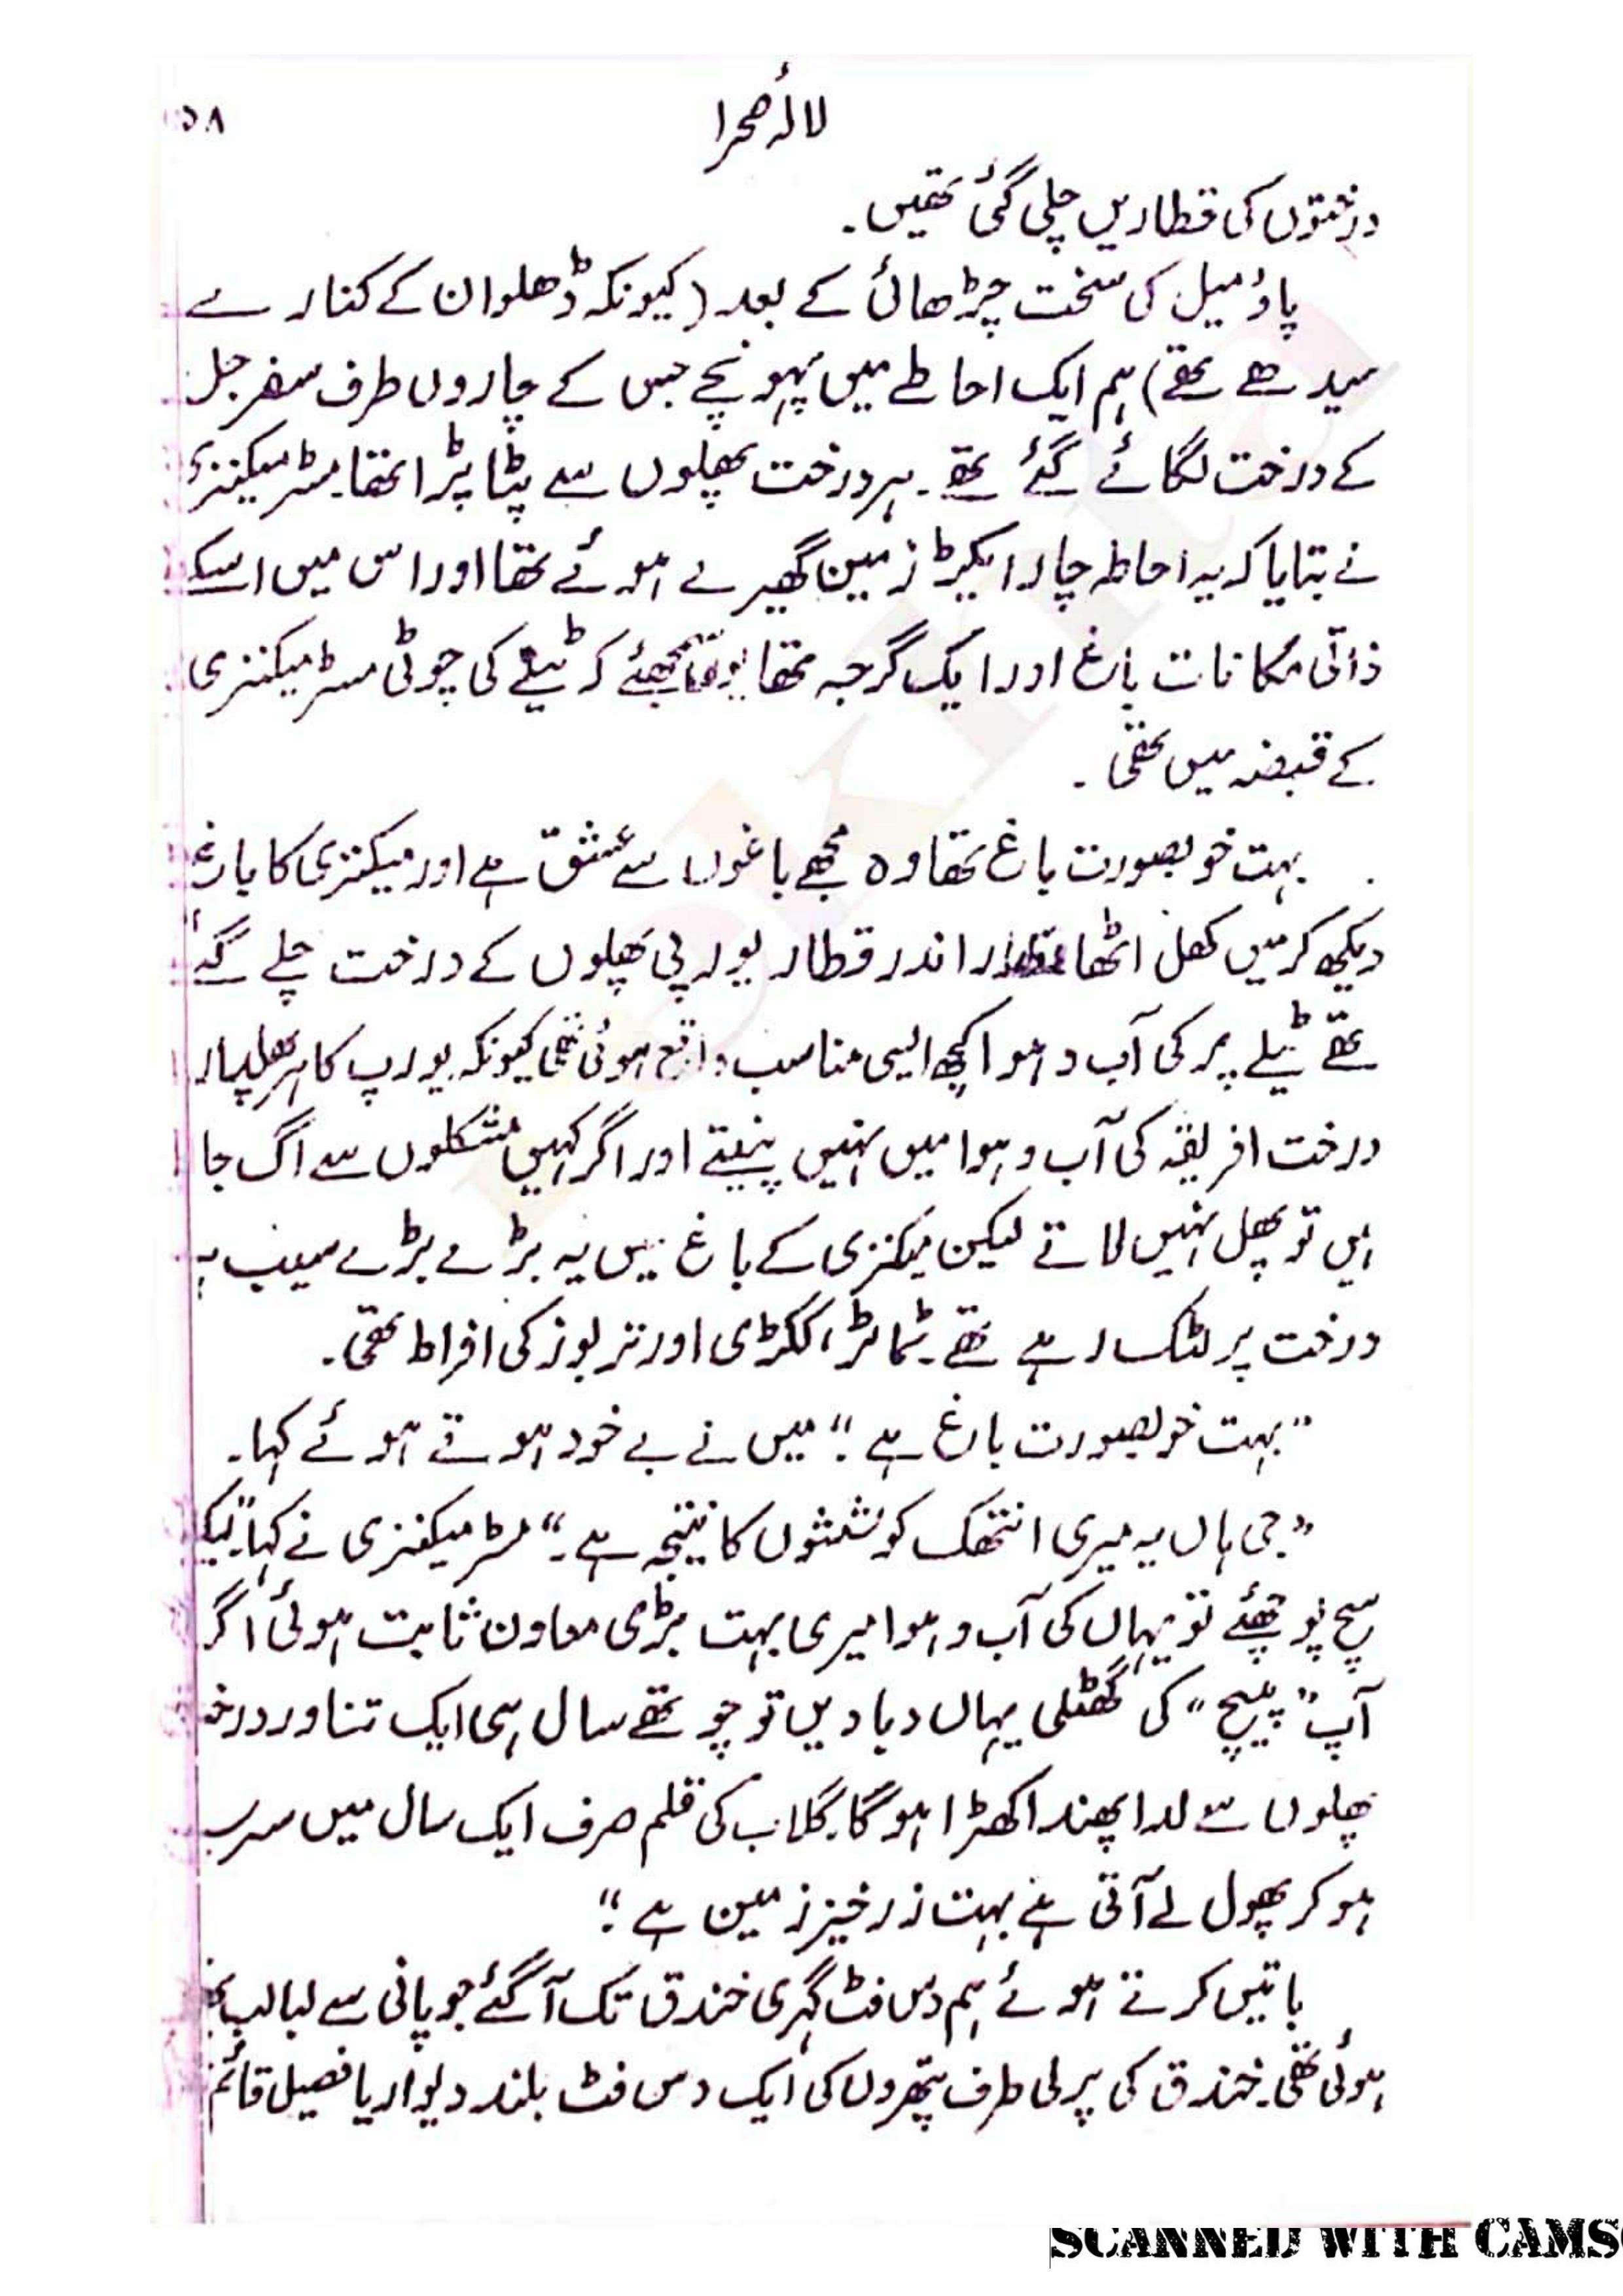 لالۂ صحرا
۵۸
درختوں کی قطاریں چلی گئی تھیں۔
پاؤ میل کی سخت چڑھائی کے بعد (کیونکہ ڈھلوان کے کنارے
سیدھے تھے) ہم ایک احاطے میں پہونچے جس کے چاروں طرف سفرجل
کے درخت لگائے گئے تھے۔ ہر درخت پھلوں سے پٹا پڑا تھا۔ مسٹر میکنزی
نے بتایا کہ یہ احاطہ چار ایکڑ زمین گھیرے ہوئے تھا اور اس میں اسکے
ذاتی مکانات باغ اور ایک گرجہ تھا یوں سمجھئے کہ ٹیلے کی چوٹی مسٹر میکنزی
کے قبضہ میں تھی۔
بہت خوبصورت باغ تھا وہ مجھے باغوں سے عشق ہے اور میکنزی کا باغ
دیکھ کر میں کھل اٹھا قطار اندر قطار یورپی پھلوں کے درخت چلے گئے
تھے ٹیلے پر کی آب و ہوا کچھ ایسی مناسب واقع ہوئی تھی کیونکہ یورپ کا ہر پھلدار
درخت افریقہ کی آب و ہوا میں نہیں پنپتے اور اگر کہیں مشکلوں سے اگ جا
ئیں تو پھل نہیں لاتے لیکن میکنزی کے باغ میں یہ بڑے بڑے سیب ہر
درخت پر لٹک رہے تھے۔ ٹماٹر، ککڑی اور تربوز کی افراط تھی۔
"بہت خوبصورت باغ ہے؛" میں نے بے خود ہوتے ہوئے کہا۔
"جی ہاں یہ میری انتھک کوششوں کا نتیجہ ہے۔" مسٹر میکنزی نے کہا "لیکن
سچ پوچھئے تو یہاں کی آب و ہوا میری بہت بڑی معاون ثابت ہوئی اگر
آپ "پیچ" کی گھٹلی یہاں دبا دیں تو چوتھے سال ہی ایک تناور درخت
پھلوں سے لدا پھندا کھڑا ہو گا۔ گلاب کی قلم صرف ایک سال میں سرسبز
ہو کر پھول لے آتی ہے بہت زرخیز زمین ہے؛"
باتیں کرتے ہوئے ہم دس فٹ گہری خندق تک آ گئے جو پانی سے لبالب بھری
ہوئی تھی۔ خندق کی پرلی طرف پتھروں کی ایک دس فٹ بلند دیوار یا فصیل قائم
SCANNED WITH CAMS